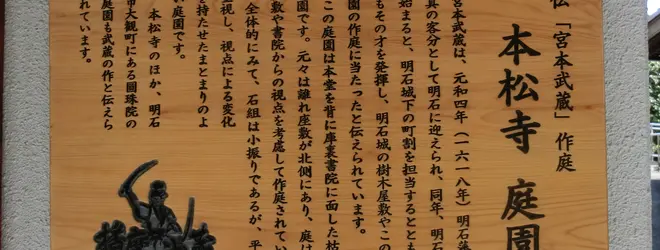 伝「宮本武蔵」作庭
本松寺 庭園
宮本武蔵は、元和四年(一六一八年)明石藩
真の客分として明石に迎えられ、同年、明石
始まると、明石城下の町割を担当するととも
もその才を発揮し、明石城の樹木屋敷やこの
園の作庭に当たったと伝えられています。
この庭園は本堂を背に庫裏書院に面した枯
園です。元々は離れ座敷が北側にあり、庭は
敷や書院からの視点を考慮して作庭されてい
全体的にみて、石組は小振りであるが、平
視し、視点による変化
を持たせたまとまりのよ
い庭園です。
本松寺のほか、明石
市大観町にある圓珠院の
庭園も武蔵の作と伝えら
れています。